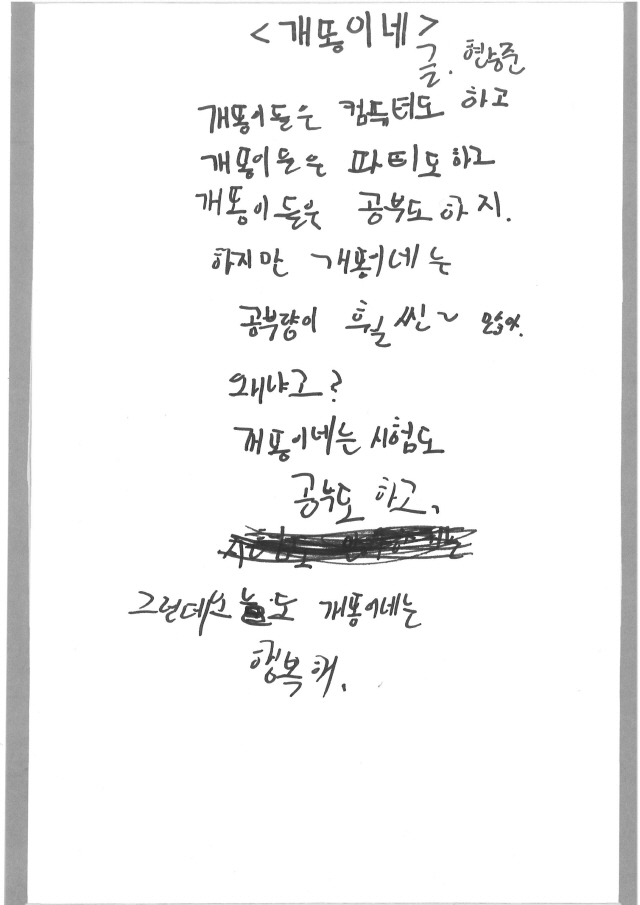 <개똥이네>
글. 현승준
개똥이들은 컴퓨터도 하고
개똥이들은 파티도 하고
개똥이들은 공부도 하지.
하지만 개똥이네는
공부량이 훨씬~
왜냐고?
개똥이네는 시험도
공부도 하고,
도 개똥이네는
행복해.